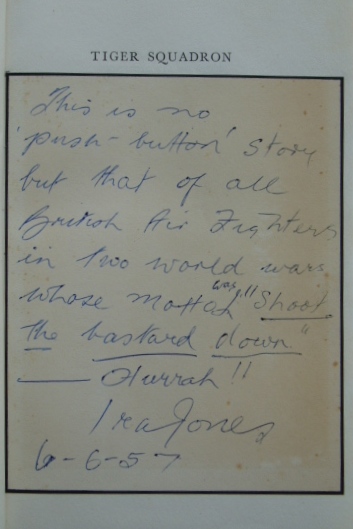 TIGER SQUADRON
This is no
'push-button' story
but that of all
British Air Fighters
in two world wars
whose mottoh was "Shoot
the bastard down"
— Hurrah!!
Ira Jones
6-6-57